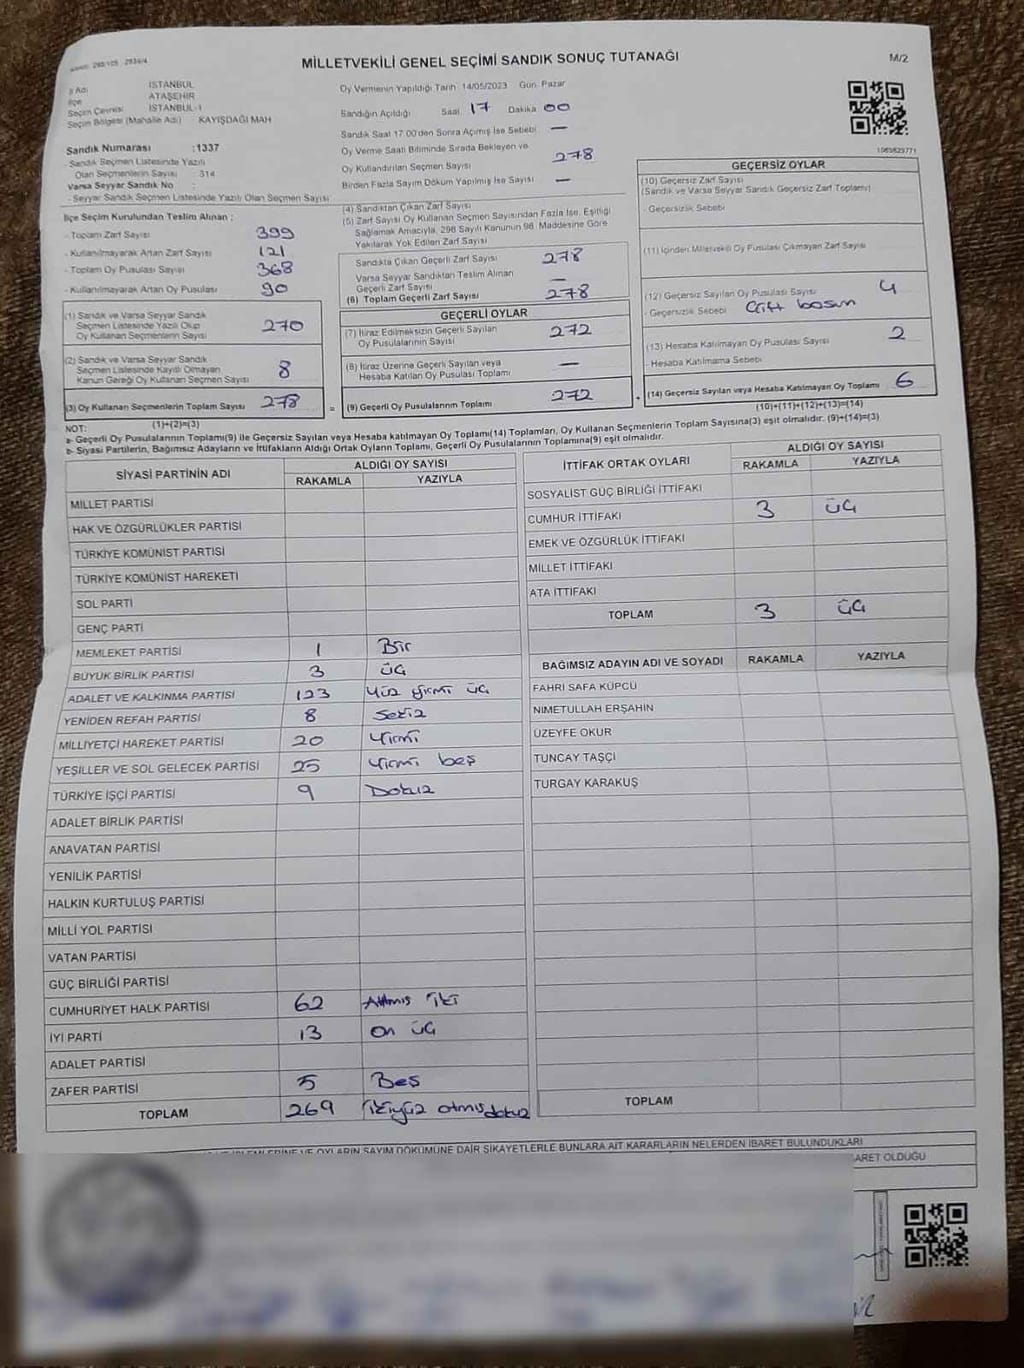 MİLLETVEKİLİ GENEL SEÇİMİ SANDIK SONUÇ TUTANAĞI
M/2
İl Adı İSTANBUL
İlçe ATAŞEHİR
Seçim Çevresi İSTANBUL-1
Seçim Bölgesi (Mahalle Adı) KAYIŞDAĞI MAH
Sandık Numarası :1337
- Sandık Seçmen Listesinde Yazılı
Olan Seçmenlerin Sayısı 314
Varsa Seyyar Sandık No :
- Seyyar Sandık Seçmen Listesinde Yazılı Olan Seçmen Sayısı
Oy Vermenin Yapıldığı Tarih 14/05/2023 Gün: Pazar
Sandığın Açıldığı Saat 17 Dakika 00
Sandık Saat 17.00'den Sonra Açılmış İse Sebebi —
Oy Verme Saati Bitiminde Sırada Bekleyen ve
Oy Kullandırılan Seçmen Sayısı 278
Birden Fazla Sayım Döküm Yapılmış İse Sayısı —
1063629771
İlçe Seçim Kurulundan Teslim Alınan ;
- Toplam Zarf Sayısı 399
- Kullanılmayarak Artan Zarf Sayısı 121
- Toplam Oy Pusulası Sayısı 368
- Kullanılmayarak Artan Oy Pusulası 90
(1) Sandık ve Varsa Seyyar Sandık
Seçmen Listesinde Yazılı Olup
Oy Kullanan Seçmenlerin Sayısı 270
(2) Sandık ve Varsa Seyyar Sandık
Seçmen Listesinde Kayıtlı Olmayan
Kanun Gereği Oy Kullanan Seçmen Sayısı 8
(3) Oy Kullanan Seçmenlerin Toplam Sayısı 278
(1)+(2)=(3)
(4) Sandıktan Çıkan Zarf Sayısı
(5) Zarf Sayısı Oy Kullanan Seçmen Sayısından Fazla İse, Eşitliği
Sağlamak Amacıyla, 298 Sayılı Kanunun 98. Maddesine Göre
Yakılarak Yok Edilen Zarf Sayısı
Sandıkta Çıkan Geçerli Zarf Sayısı 278
Varsa Seyyar Sandıktan Teslim Alınan
Geçerli Zarf Sayısı —
(6) Toplam Geçerli Zarf Sayısı 278
GEÇERLİ OYLAR
(7) İtiraz Edilmeksizin Geçerli Sayılan
Oy Pusulalarının Sayısı 272
(8) İtiraz Üzerine Geçerli Sayılan veya
Hesaba Katılan Oy Pusulası Toplamı —
= (9) Geçerli Oy Pusulalarının Toplamı 272
GEÇERSİZ OYLAR
(10) Geçersiz Zarf Sayısı
(Sandık ve Varsa Seyyar Sandık Geçersiz Zarf Toplamı)
- Geçersizlik Sebebi
(11) İçinden Milletvekili Oy Pusulası Çıkmayan Zarf Sayısı
(12) Geçersiz Sayılan Oy Pusulası Sayısı 4
- Geçersizlik Sebebi Çift basım
(13) Hesaba Katılmayan Oy Pusulası Sayısı 2
Hesaba Katılmama Sebebi
+ (14) Geçersiz Sayılan veya Hesaba Katılmayan Oy Toplamı 6
(10)+(11)+(12)+(13)=(14)
NOT:
a- Geçerli Oy Pusulalarının Toplamı(9) ile Geçersiz Sayılan veya Hesaba katılmayan Oy Toplamı(14) Toplamları, Oy Kullanan Seçmenlerin Toplam Sayısına(3) eşit olmalıdır. (9)+(14)=(3)
b- Siyasi Partilerin, Bağımsız Adayların ve İttifakların Aldığı Ortak Oyların Toplamı, Geçerli Oy Pusulalarının Toplamına(9) eşit olmalıdır.
SİYASİ PARTİNİN ADI ALDIĞI OY SAYISI
RAKAMLA YAZIYLA
MİLLET PARTİSİ
HAK VE ÖZGÜRLÜKLER PARTİSİ
TÜRKİYE KOMÜNİST PARTİSİ
TÜRKİYE KOMÜNİST HAREKETİ
SOL PARTİ
GENÇ PARTİ
MEMLEKET PARTİSİ 1 Bir
BÜYÜK BİRLİK PARTİSİ 3 üç
ADALET VE KALKINMA PARTİSİ 123 Yüz yirmi üç
YENİDEN REFAH PARTİSİ 8 Sekiz
MİLLİYETÇİ HAREKET PARTİSİ 20 Yirmi
YEŞİLLER VE SOL GELECEK PARTİSİ 25 Yirmi beş
TÜRKİYE İŞÇİ PARTİSİ 9 Dokuz
ADALET BİRLİK PARTİSİ
ANAVATAN PARTİSİ
YENİLİK PARTİSİ
HALKIN KURTULUŞ PARTİSİ
MİLLİ YOL PARTİSİ
VATAN PARTİSİ
GÜÇ BİRLİĞİ PARTİSİ
CUMHURİYET HALK PARTİSİ 62 Altmış iki
İYİ PARTİ 13 on üç
ADALET PARTİSİ
ZAFER PARTİSİ 5 Beş
TOPLAM 269 ikiyüz atmışdokuz
İTTİFAK ORTAK OYLARI ALDIĞI OY SAYISI
RAKAMLA YAZIYLA
SOSYALİST GÜÇ BİRLİĞİ İTTİFAKI
CUMHUR İTTİFAKI 3 üç
EMEK VE ÖZGÜRLÜK İTTİFAKI
MİLLET İTTİFAKI
ATA İTTİFAKI
TOPLAM 3 üç
BAĞIMSIZ ADAYIN ADI VE SOYADI RAKAMLA YAZIYLA
FAHRİ SAFA KÜPCÜ
NİMETULLAH ERŞAHİN
ÜZEYFE OKUR
TUNCAY TAŞÇI
TURGAY KARAKUŞ
TOPLAM
VE OYLARIN SAYIM DÖKÜMÜNE DAİR ŞİKAYETLERLE BUNLARA AİT KARARLARIN NELERDEN İBARET BULUNDUKLARI
OLDUĞU